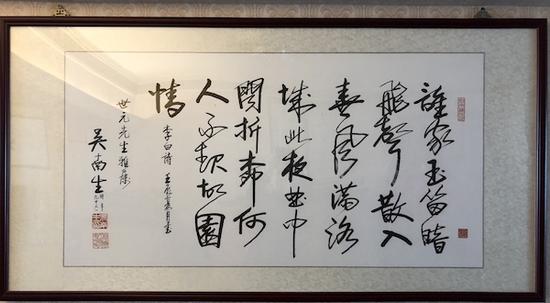 誰家玉笛暗
飛聲散入
春风滿洛
城此夜曲中
聞折柳何
人不起故園
情
李白詩
世元先生雅
吴南生